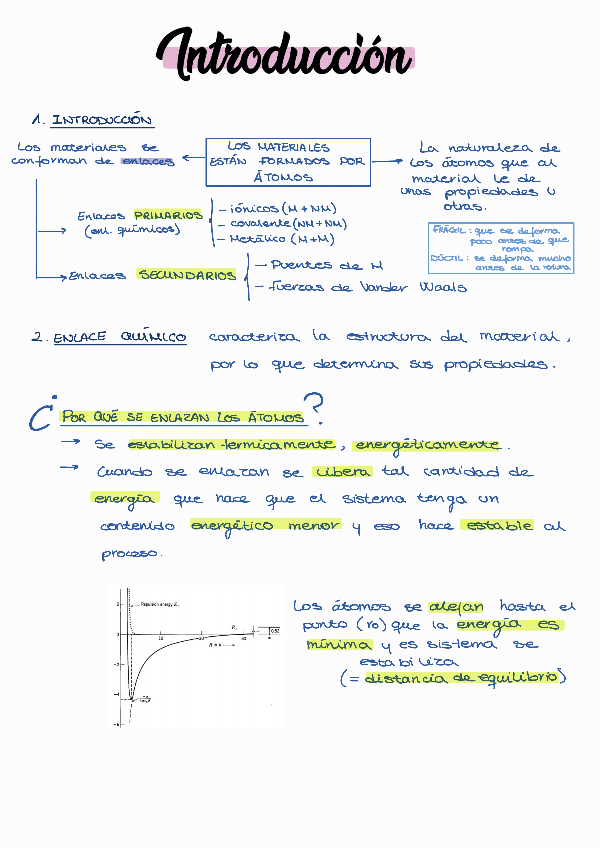 Introducción
1. INTRODUCCIÓN
Los materiales se
conforman de enlaces
LOS MATERIALES
ESTÁN FORMADOS POR
ÁTOMOS
La naturaleza de
los átomos que al
material le de
unas propiedades u
otras.
Enlaces PRIMARIOS
(enl. químicos)
- iónicos (M + NM)
- covalente (NM + NM)
- Metálico (M + M)
FRÁGIL: que se deforma
poco antes de que
rompa.
DÚCTIL: se deforma mucho
antes de la rotura.
Enlaces SECUNDARIOS
- Puentes de H
- Fuerzas de Vander Waals
2. ENLACE QUÍMICO caracteriza la estructura del material,
por lo que determina sus propiedades.
¿POR QUÉ SE ENLAZAN LOS ÁTOMOS?
→ Se estabilizan termicamente, energéticamente.
→ Cuando se enlazan se libera tal cantidad de
energía que hace que el sistema tenga un
contenido energético menor y eso hace estable al
proceso.
2
Repulsion energy
0
10
20
30
0.52
-2
-4
-6
Los átomos se alejan hasta el
punto (ro) que la energía es
mínima y es sistema se
estabiliza
(= distancia de equilibrio)